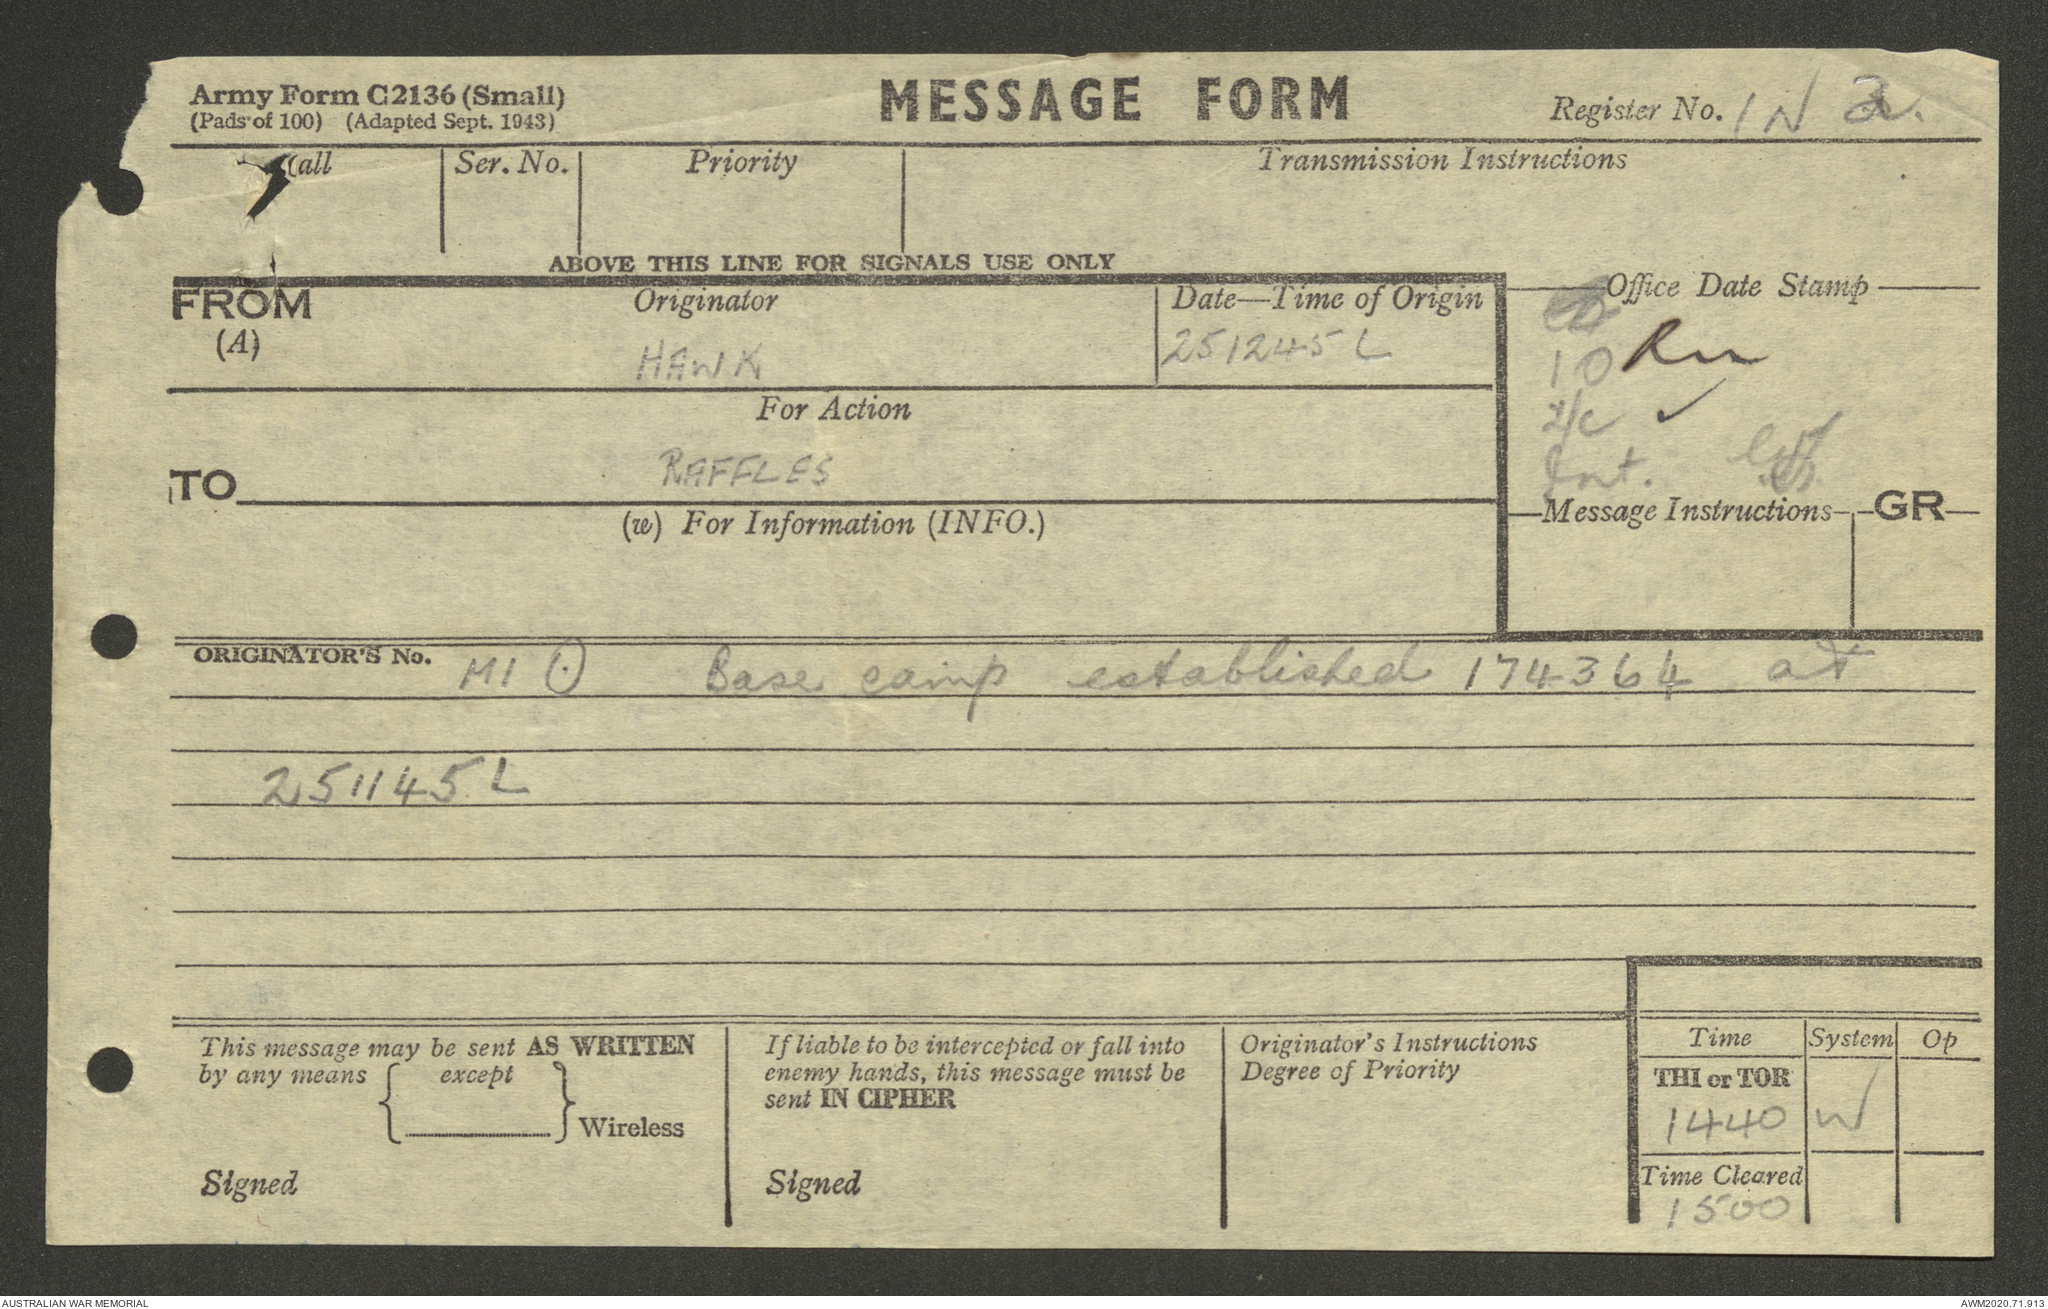 Army Form C2136 (Small)
(Pads of 100) (Adapted Sept. 1943)
MESSAGE FORM
Register No. IN 2.
Call
Ser. No.
Priority
Transmission Instructions
ABOVE THIS LINE FOR SIGNALS USE ONLY
FROM
(A)
Originator
HAWK
Date—Time of Origin
251245L
Office Date Stamp
IO
2/c
Int.
For Action
TO
RAFFLES
(w) For Information (INFO.)
Message Instructions
GR
ORIGINATOR'S No.
M1 Base camp established 174364 at
251145L
This message may be sent AS WRITTEN
by any means except
Wireless
Signed
If liable to be intercepted or fall into
enemy hands, this message must be
sent IN CIPHER
Signed
Originator's Instructions
Degree of Priority
Time System Op
THI or TOR
1440 W
Time Cleared
1500
AUSTRALIAN WAR MEMORIAL
AWM2020.71.913